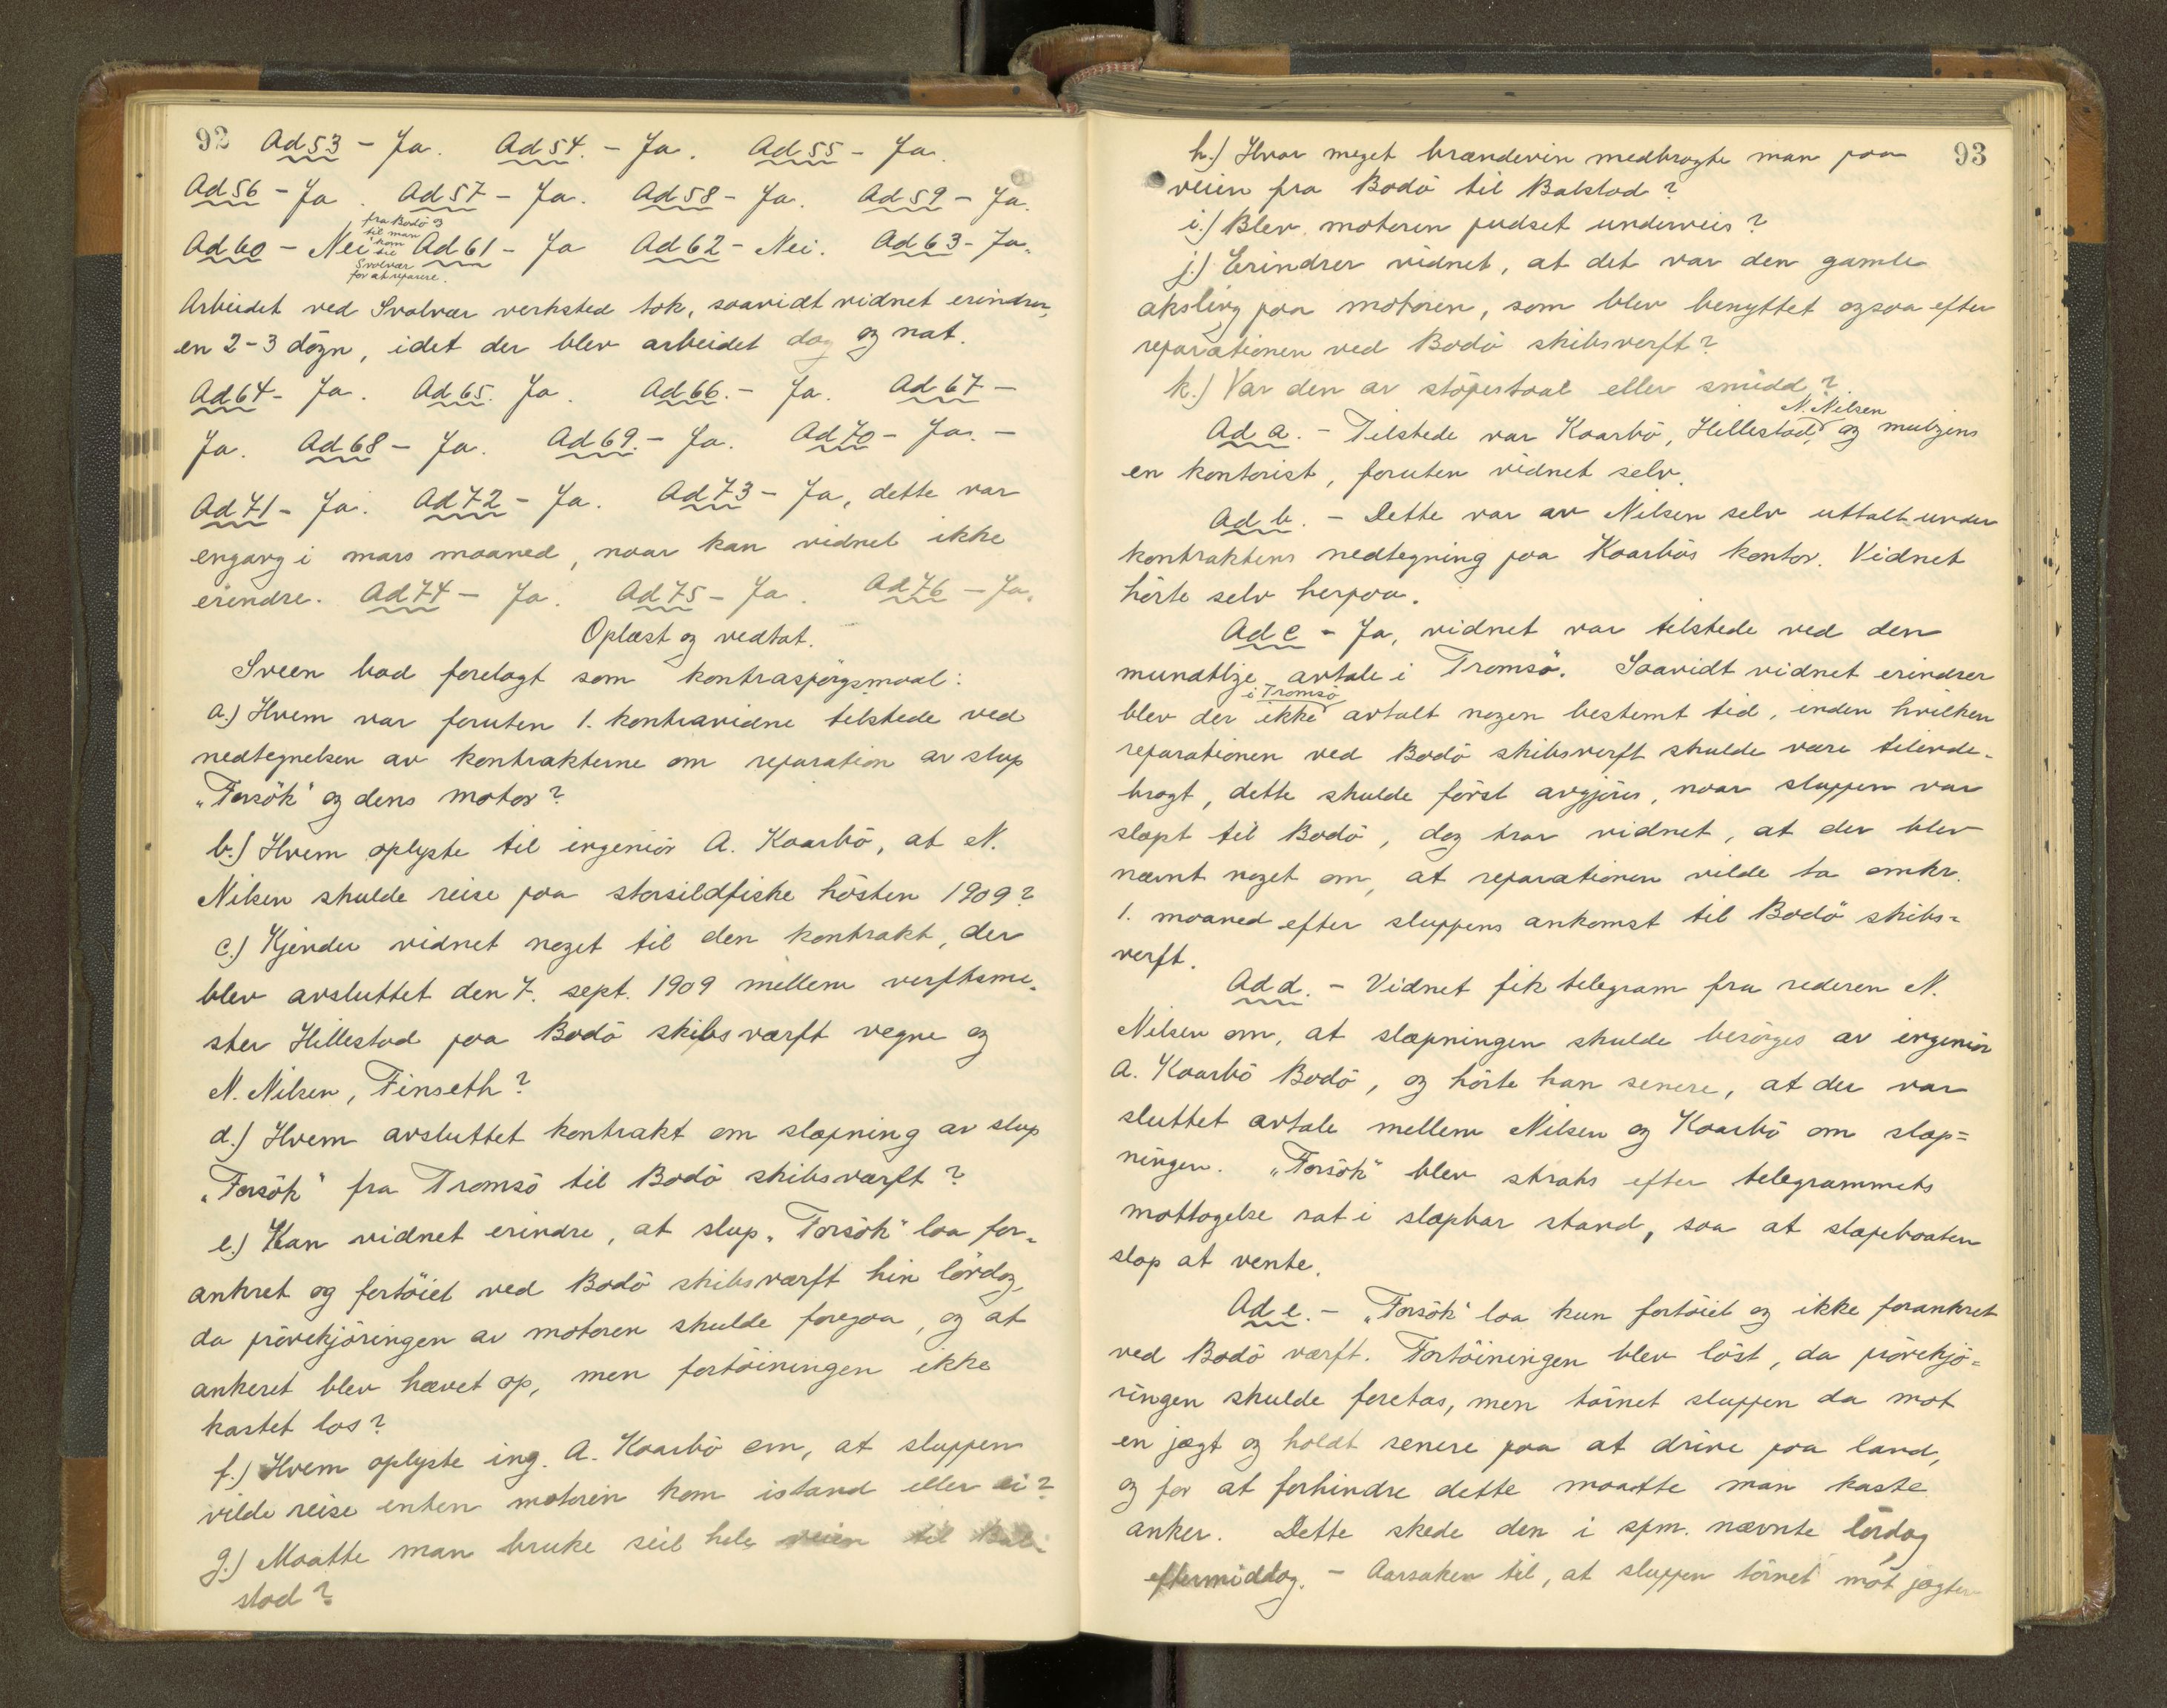 92 Ad 53 - Ja. Ad 54. - Ja. Ad 55 - Ja.
Ad 56 - Ja. Ad 57 - Ja. Ad 58 - Ja. Ad 59 - Ja.
fra Bodö og
til man
kom
til
Svolvær
for at reparere.
Ad 60 - Nei Ad 61 - Ja Ad 62 - Nei. Ad 63 - Ja.
Arbeidet ved Svolvær verksted tok, saavidt vidnet erindrer,
en 2-3 dögn, idet der blev arbeidet dag og nat.
Ad 64 - Ja. Ad 65. Ja. Ad 66. - Ja. Ad 67 -
Ja. Ad 68 - Ja. Ad 69. - Ja. Ad 70 - Ja. -
Ad 71 - Ja. Ad 72 - Ja. Ad 73 - Ja, dette var
engang i mars maaned, naar kan vidnet ikke
erindre. Ad 74 - Ja. Ad 75 - Ja. Ad 76 - Ja.
Oplæst og vedtat.
Sveen bad forelagt som kontraspörgsmaal:
a.) Hvem var foruten 1. kontravidne tilstede ved
nedtegnelsen av kontrakterne om reparation av slup
"Forsök" og dens motor?
b.) Hvem oplyste til ingeniör A. Kaarbö, at N.
Nilsen skulde reise paa storsildfiske hösten 1909?
c.) Kjender vidnet noget til den kontrakt, der
blev avsluttet den 7. sept. 1909 mellem verftsme-
ster Hillestad paa Bodö skibsværft vegne og
N. Nilsen, Finseth?
d.) Hvem avsluttet kontrakt om slæpning av slup
"Forsök" fra Tromsö til Bodö skibsværft?
e.) Kan vidnet erindre, at slup "Forsök" laa for-
ankret og fortöiet ved Bodö skibsværft hin lördag,
da prövekjöringen av motoren skulde foregaa, og at
ankeret blev hævet op, men fortöiningen ikke
kastet los?
f.) Hvem oplyste ing. A. Kaarbö om, at sluppen
vilde reise enten motoren kom istand eller ei?
g.) Maatte man bruke seil hele veien til Bal-
stad?
93
h.) Hvor meget brændevin medbragte man paa
veien fra Bodö til Balstad?
i.) Blev motoren pudset underveis?
j.) Erindrer vidnet, at det var den gamle
aksling paa motoren, som blev benyttet ogsaa efter
reparationen ved Bodö skibsverft?
k.) Var den av stöpestaal eller smidd?
N. Nilsen
Ad a. - Tilstede var Kaarbö, Hillestad, og muligens
en kontorist, foruten vidnet selv.
Ad b. - Dette var av Nilsen selv uttalt under
kontraktens nedtegning paa Kaarbös kontor. Vidnet
hörte selv herpaa.
Ad c - Ja, vidnet var tilstede ved den
mundtlige avtale i Tromsö. Saavidt vidnet erindrer
i Tromsö
blev der ikke avtalt nogen bestemt tid, inden hvilken
reparationen ved Bodö skibsverft skulde være tilende-
bragt, dette skulde först avgjöres, naar sluppen var
slæpt til Bodö, dog tror vidnet, at der blev
nævnt noget om, at reparationen vilde ta omkr.
1. maaned efter sluppens ankomst til Bodö skibs-
verft.
Ad d. - Vidnet fik telegram fra rederen N.
Nilsen om, at slæpningen skulde besörges av ingeniör
A. Kaarbö Bodö, og hörte han senere, at der var
sluttet avtale mellem Nilsen og Kaarbö om slæp-
ningen. "Forsök" blev straks efter telegrammets
mottagelse sat i slæpbar stand, saa at slæpebaaten
slap at vente.
Ad e. - "Forsök" laa kun fortöiet og ikke forankret
ved Bodö værft. Fortöiningen blev löst, da prövekjö-
ringen skulde foretas, men törnet sluppen da mot
en jægt og holdt senere paa at drive paa land,
og for at forhindre dette maatte man kaste
anker. Dette skede den i spm. nævnte lördag
eftermiddag. - Aarsaken til, at sluppen törnet mot jægten